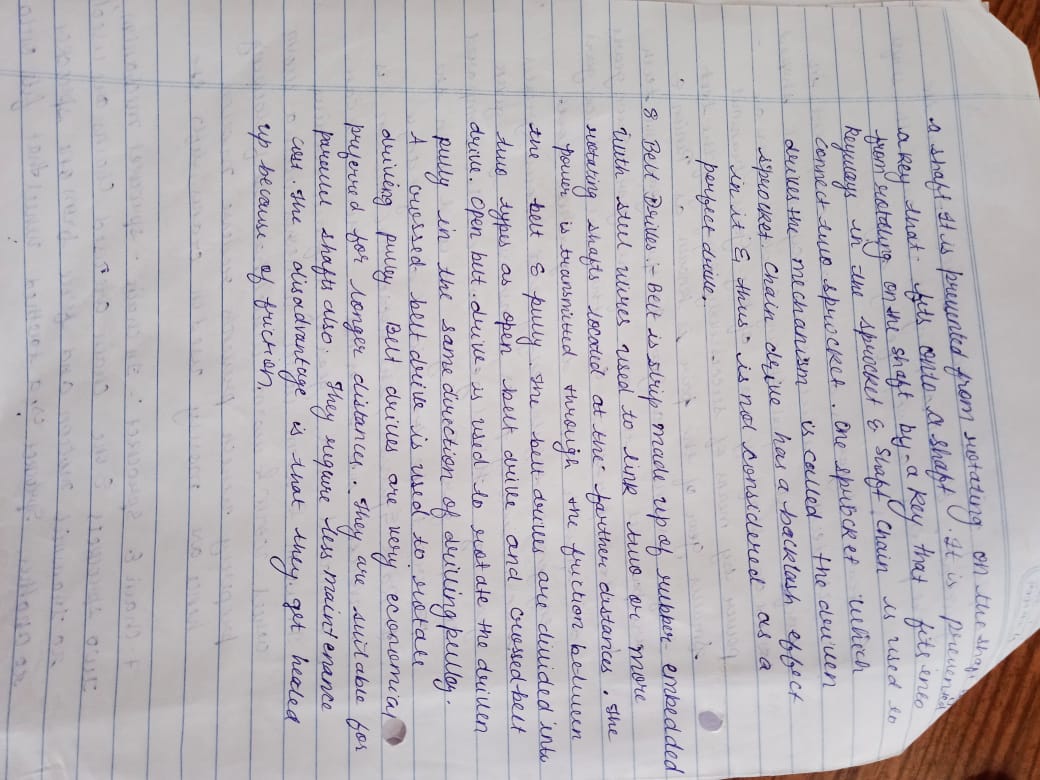 a shaft. It is prevented from rotating on the shaft
a key that fits onto a shaft. It is prevented
from rotating on the shaft by a key that fits into
keyways in the sprocket & shaft chain is used to
connect two sprocket. One sprocket which
drives the mechanism is called the driven
sprocket chain drive has a backlash effect
in it & thus is not considered as a
perfect drive.
8 Belt Drives :- Belt is strip made up of rubber embedded
with steel wires used to link two or more
rotating shafts located at the farther distances. The
power is transmitted through the friction between
the belt & pully. The belt drives are divided into
two types as open belt drive and crossed belt
drive. Open belt drive is used to rotate the driven
pully in the same direction of driving pully.
A crossed belt drive is used to rotate
driveing pully. Belt drives are very economical
preferred for longer distance. They are suitable for
parallel shafts also. They require less maintenance
cost. The disadvantage is that they get heated
up because of friction.